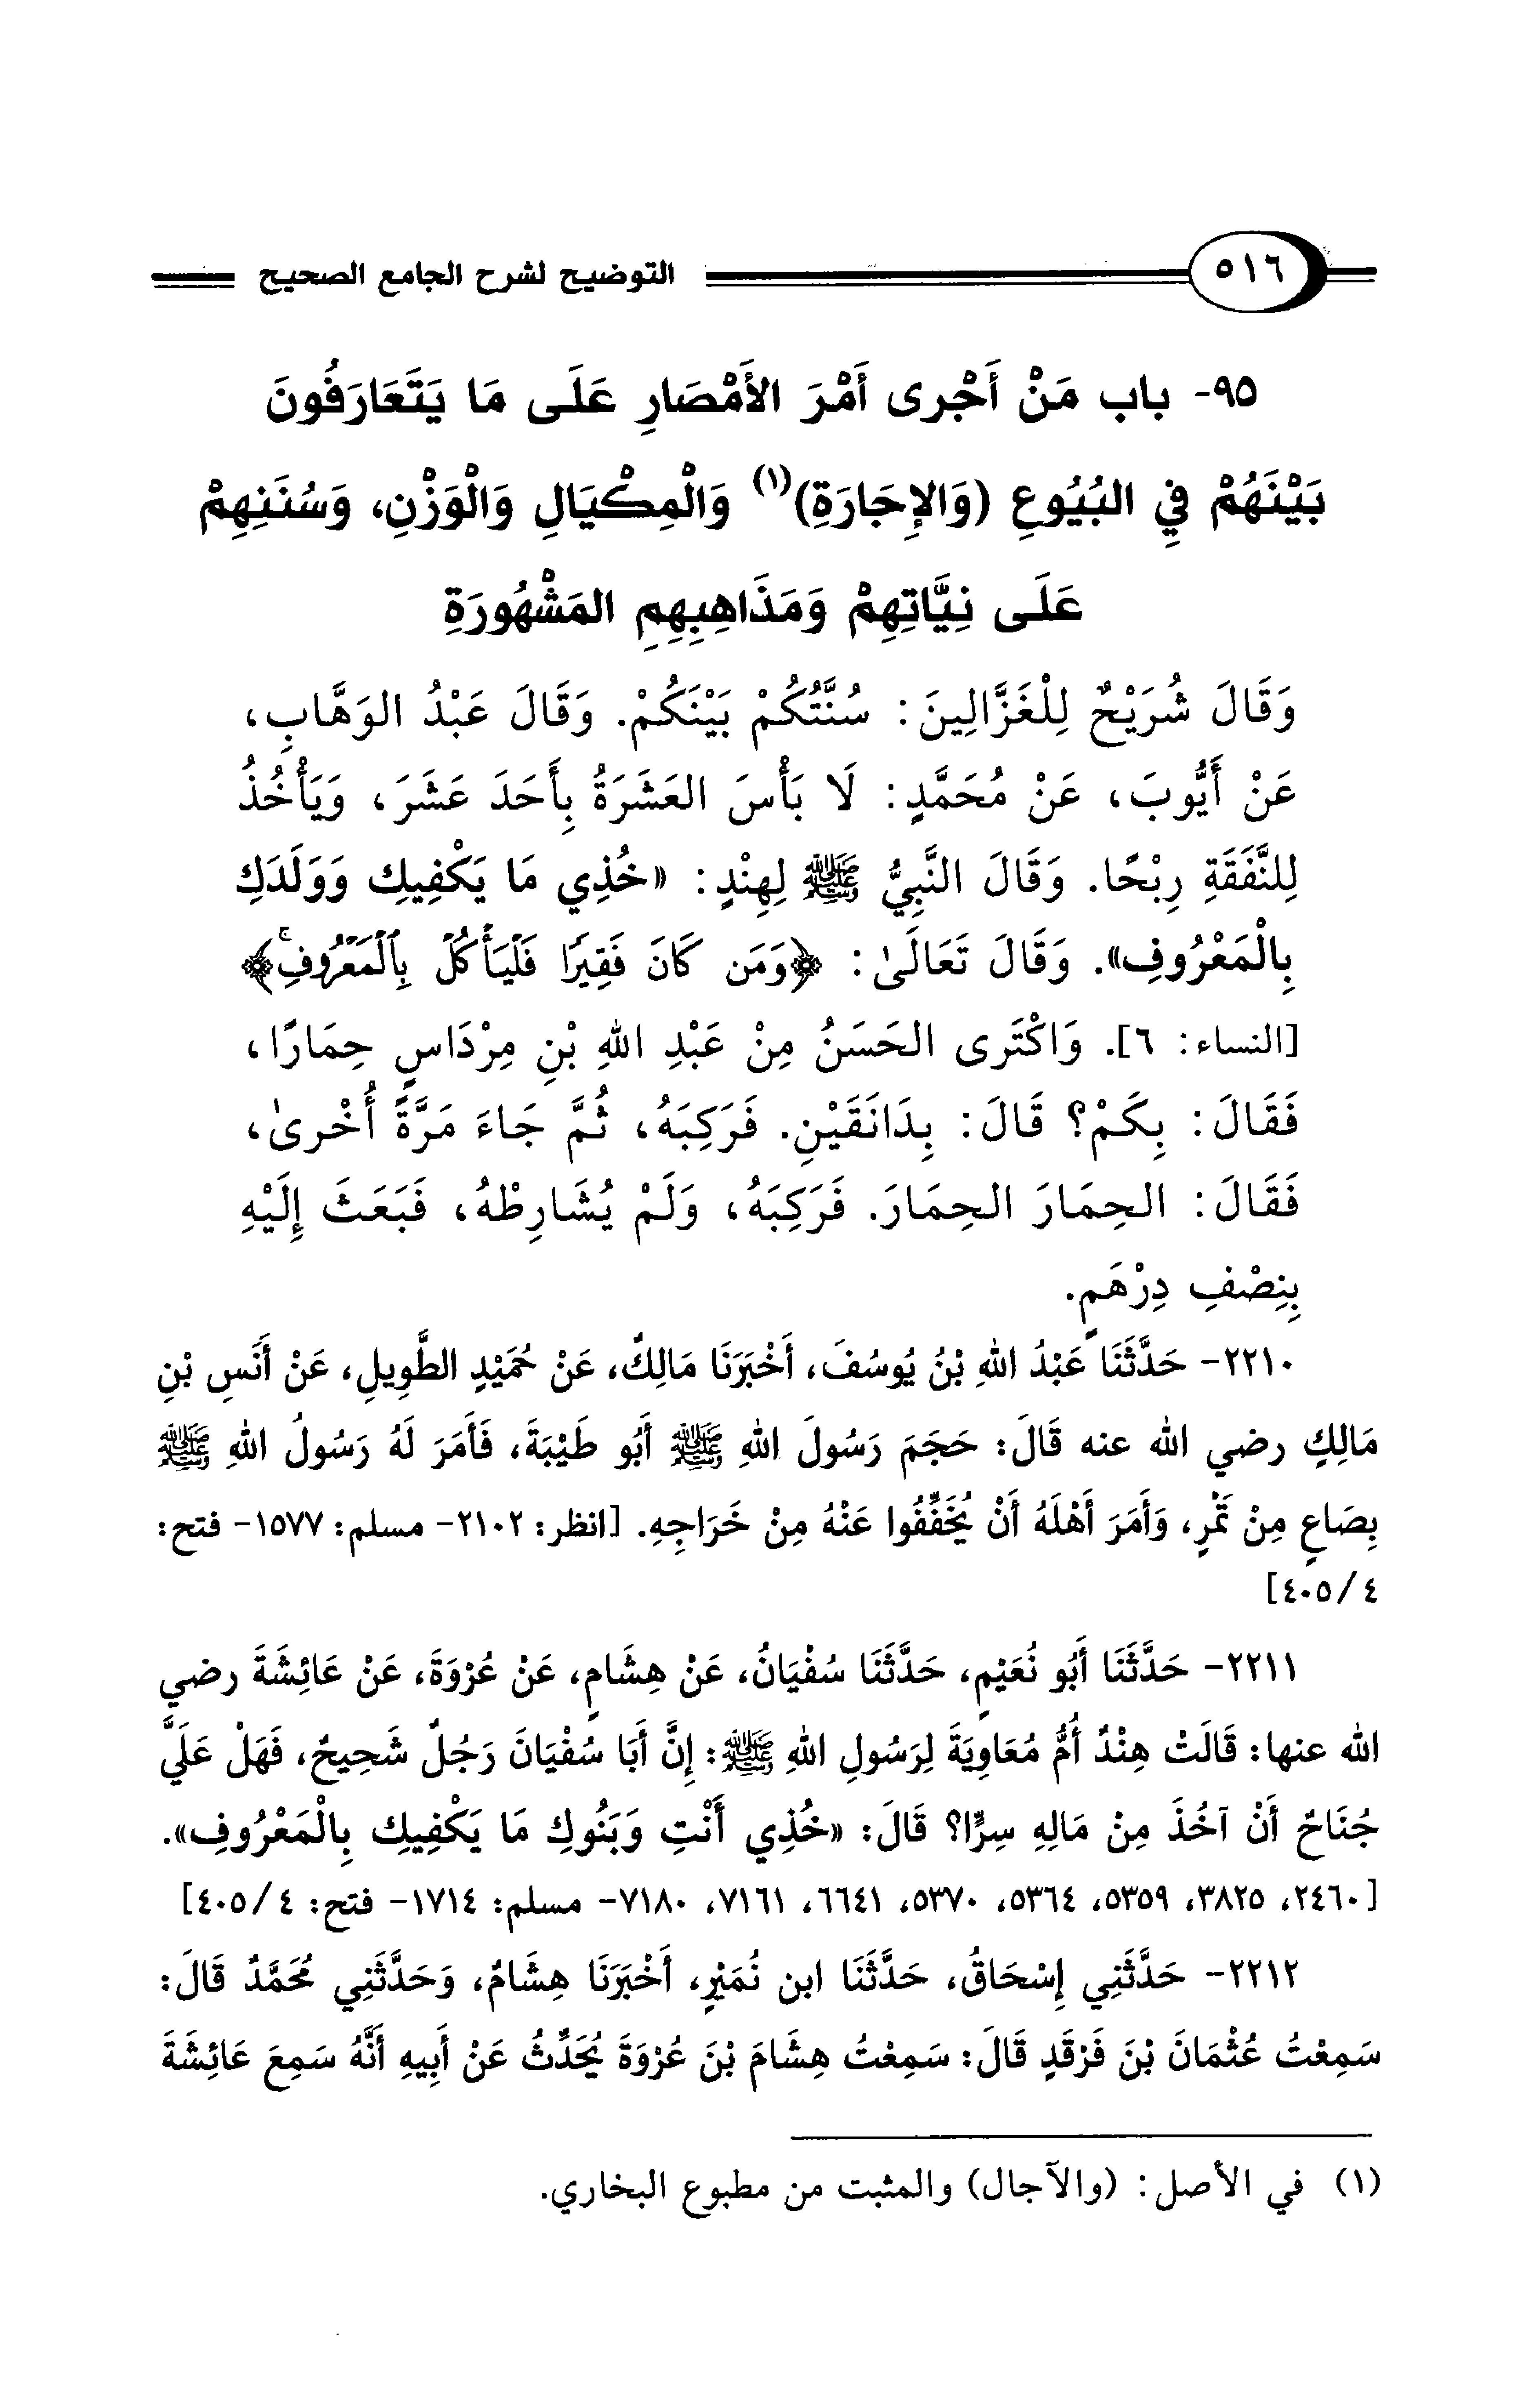 ٥١٦ التوضيح لشرح الجامع الصحيح
٩٥- باب مَنْ أَجْرى أَمْرَ الأَمْصَارِ عَلَى مَا يَتَعَارَفُونَ
بَيْنَهُمْ فِي البُيُوعِ (وَالإِجَارَةِ)(١) وَالْمِكْيَالِ وَالْوَزْنِ، وَسُنَنِهِمْ
عَلَى نِيَّاتِهِمْ وَمَذَاهِبِهِمِ المَشْهُورَةِ
وَقَالَ شُرَيْحٌ لِلْغَزَّالِينَ: سُنَّتُكُمْ بَيْنَكُمْ. وَقَالَ عَبْدُ الوَهَّابِ،
عَنْ أَيُّوبَ، عَنْ مُحَمَّدٍ: لَا بَأْسَ العَشَرَةُ بِأَحَدَ عَشَرَ، وَيَأْخُذُ
لِلنَّفَقَةِ رِبْحًا. وَقَالَ النَّبِيُّ ﷺ لِهِنْدٍ: «خُذِي مَا يَكْفِيكِ وَوَلَدَكِ
بِالْمَعْرُوفِ». وَقَالَ تَعَالَىٰ: ﴿وَمَن كَانَ فَقِيرًا فَلْيَأْكُلْ بِٱلْمَعْرُوفِۚ﴾
[النساء: ٦]. وَاكْتَرى الحَسَنُ مِنْ عَبْدِ اللهِ بْنِ مِرْدَاسٍ حِمَارًا،
فَقَالَ: بِكَمْ؟ قَالَ: بِدَانَقَيْنِ. فَرَكِبَهُ، ثُمَّ جَاءَ مَرَّةً أُخْرىٰ،
فَقَالَ: الحِمَارَ الحِمَارَ. فَرَكِبَهُ، وَلَمْ يُشَارِطْهُ، فَبَعَثَ إِلَيْهِ
بِنِصْفِ دِرْهَمٍ.
٢٢١٠- حَدَّثَنَا عَبْدُ اللهِ بْنُ يُوسُفَ، أَخْبَرَنَا مَالِكٌ، عَنْ حُمَيْدٍ الطَّوِيلِ، عَنْ أَنَسِ بْنِ
مَالِكٍ رضي الله عنه قَالَ: حَجَمَ رَسُولَ اللهِ ﷺ أَبُو طَيْبَةَ، فَأَمَرَ لَهُ رَسُولُ اللهِ ﷺ
بِصَاعٍ مِنْ تَمْرٍ، وَأَمَرَ أَهْلَهُ أَنْ يُخَفِّفُوا عَنْهُ مِنْ خَرَاجِهِ. [انظر: ٢١٠٢- مسلم: ١٥٧٧- فتح:
٤/ ٤٠٥]
٢٢١١- حَدَّثَنَا أَبُو نُعَيْمٍ، حَدَّثَنَا سُفْيَانُ، عَنْ هِشَامٍ، عَنْ عُرْوَةَ، عَنْ عَائِشَةَ رضي
الله عنها: قَالَتْ هِنْدٌ أُمُّ مُعَاوِيَةَ لِرَسُولِ اللهِ ﷺ: إِنَّ أَبَا سُفْيَانَ رَجُلٌ شَحِيحٌ، فَهَلْ عَلَيَّ
جُنَاحٌ أَنْ آخُذَ مِنْ مَالِهِ سِرًّا؟ قَالَ: «خُذِي أَنْتِ وَبَنُوكِ مَا يَكْفِيكِ بِالْمَعْرُوفِ».
[٢٤٦٠، ٣٨٢٥، ٥٣٥٩، ٥٣٦٤، ٥٣٧٠، ٦٦٤١، ٧١٦١، ٧١٨٠- مسلم: ١٧١٤- فتح: ٤/ ٤٠٥]
٢٢١٢- حَدَّثَنِي إِسْحَاقُ، حَدَّثَنَا ابن نُمَيْرٍ، أَخْبَرَنَا هِشَامٌ، وَحَدَّثَنِي مُحَمَّدٌ قَالَ:
سَمِعْتُ عُثْمَانَ بْنَ فَرْقَدٍ قَالَ: سَمِعْتُ هِشَامَ بْنَ عُرْوَةَ يُحَدِّثُ عَنْ أَبِيهِ أَنَّهُ سَمِعَ عَائِشَةَ
(١) في الأصل: (والآجال) والمثبت من مطبوع البخاري.